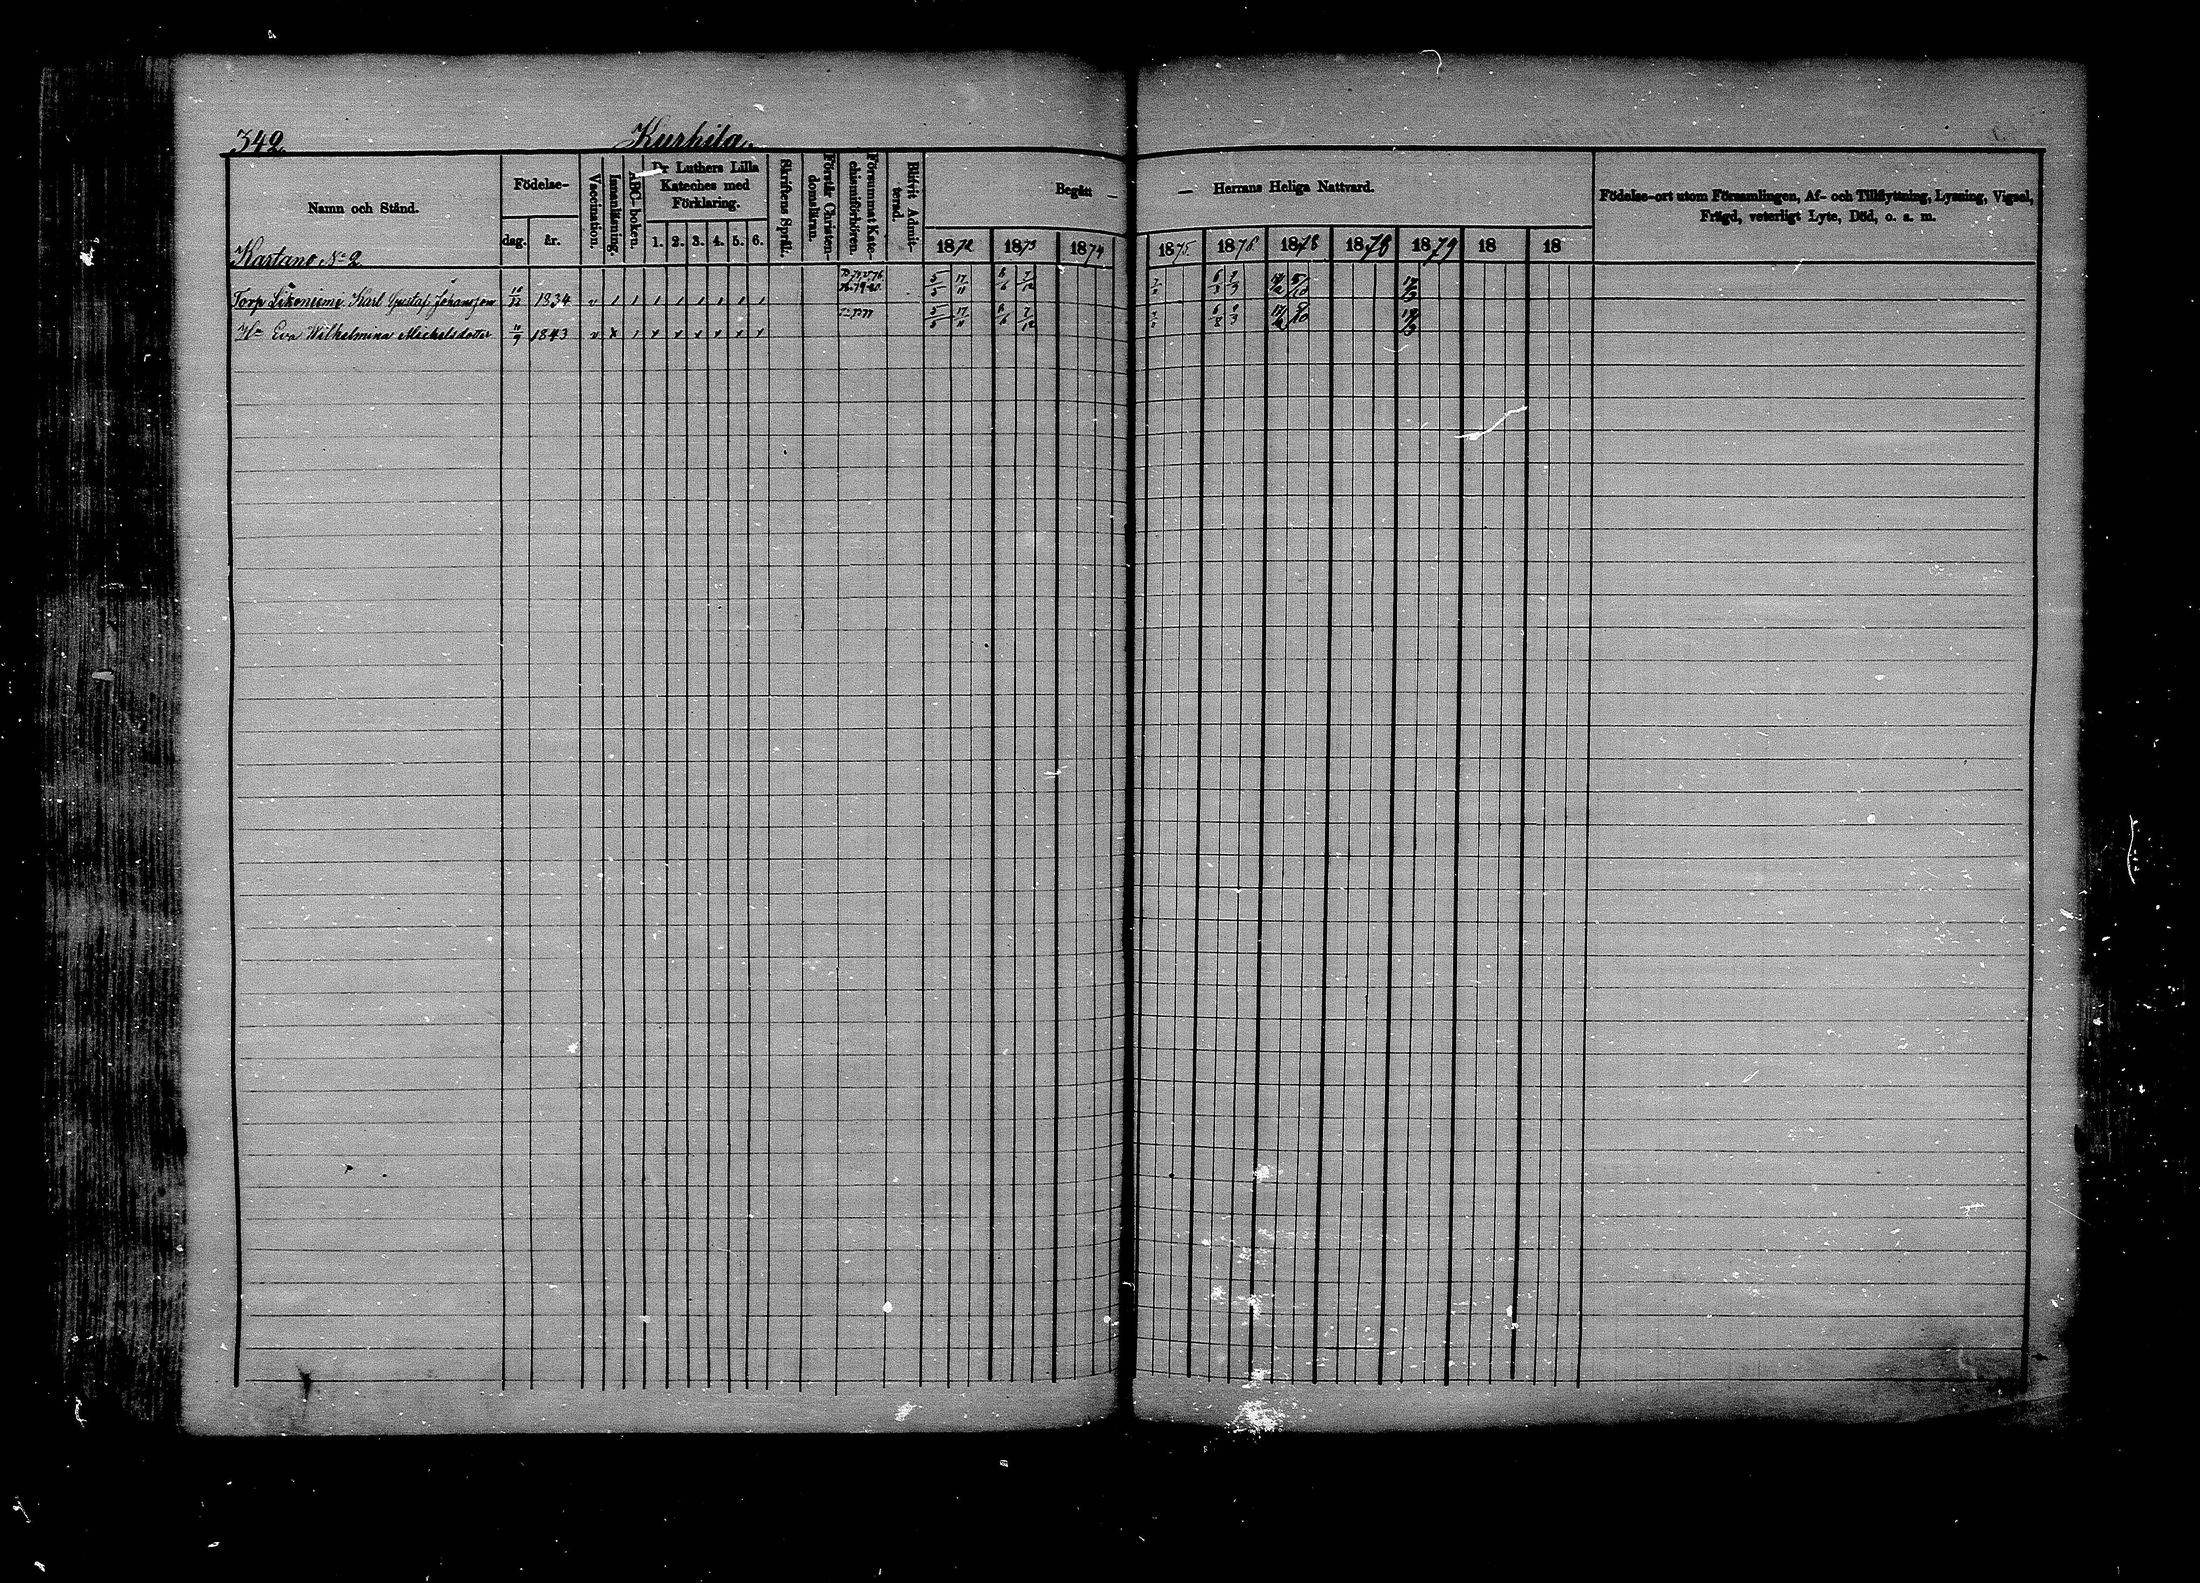 342
Kurhila.
Namn och Stånd.
Födelse-
dag. år.
Vaccination.
Innanläsning.
ABC-boken.
Dr Luthers Lilla Kateches med Förklaring.
1. 2. 3. 4. 5. 6.
Skriftens Språk.
Förstår Christendomsläran.
Försummat Katechismiförhören.
Blifvit Admitterad.
Begått — — Herrans Heliga Nattvard.
1872 1873 1874 1875 1876 1878 1878 1879 18 18
Födelse-ort utom Församlingen, Af- och Tillflyttning, Lysning, Vigsel, Frägd, veterligt Lyte, Död, o. s. m.
Kartano No 2
Torp Karl Gustaf Johansson 1834 5/5 17/11 7/12
Hu Eva Wilhelmina Michelsdotter 1843 5/5 17/11 7/12